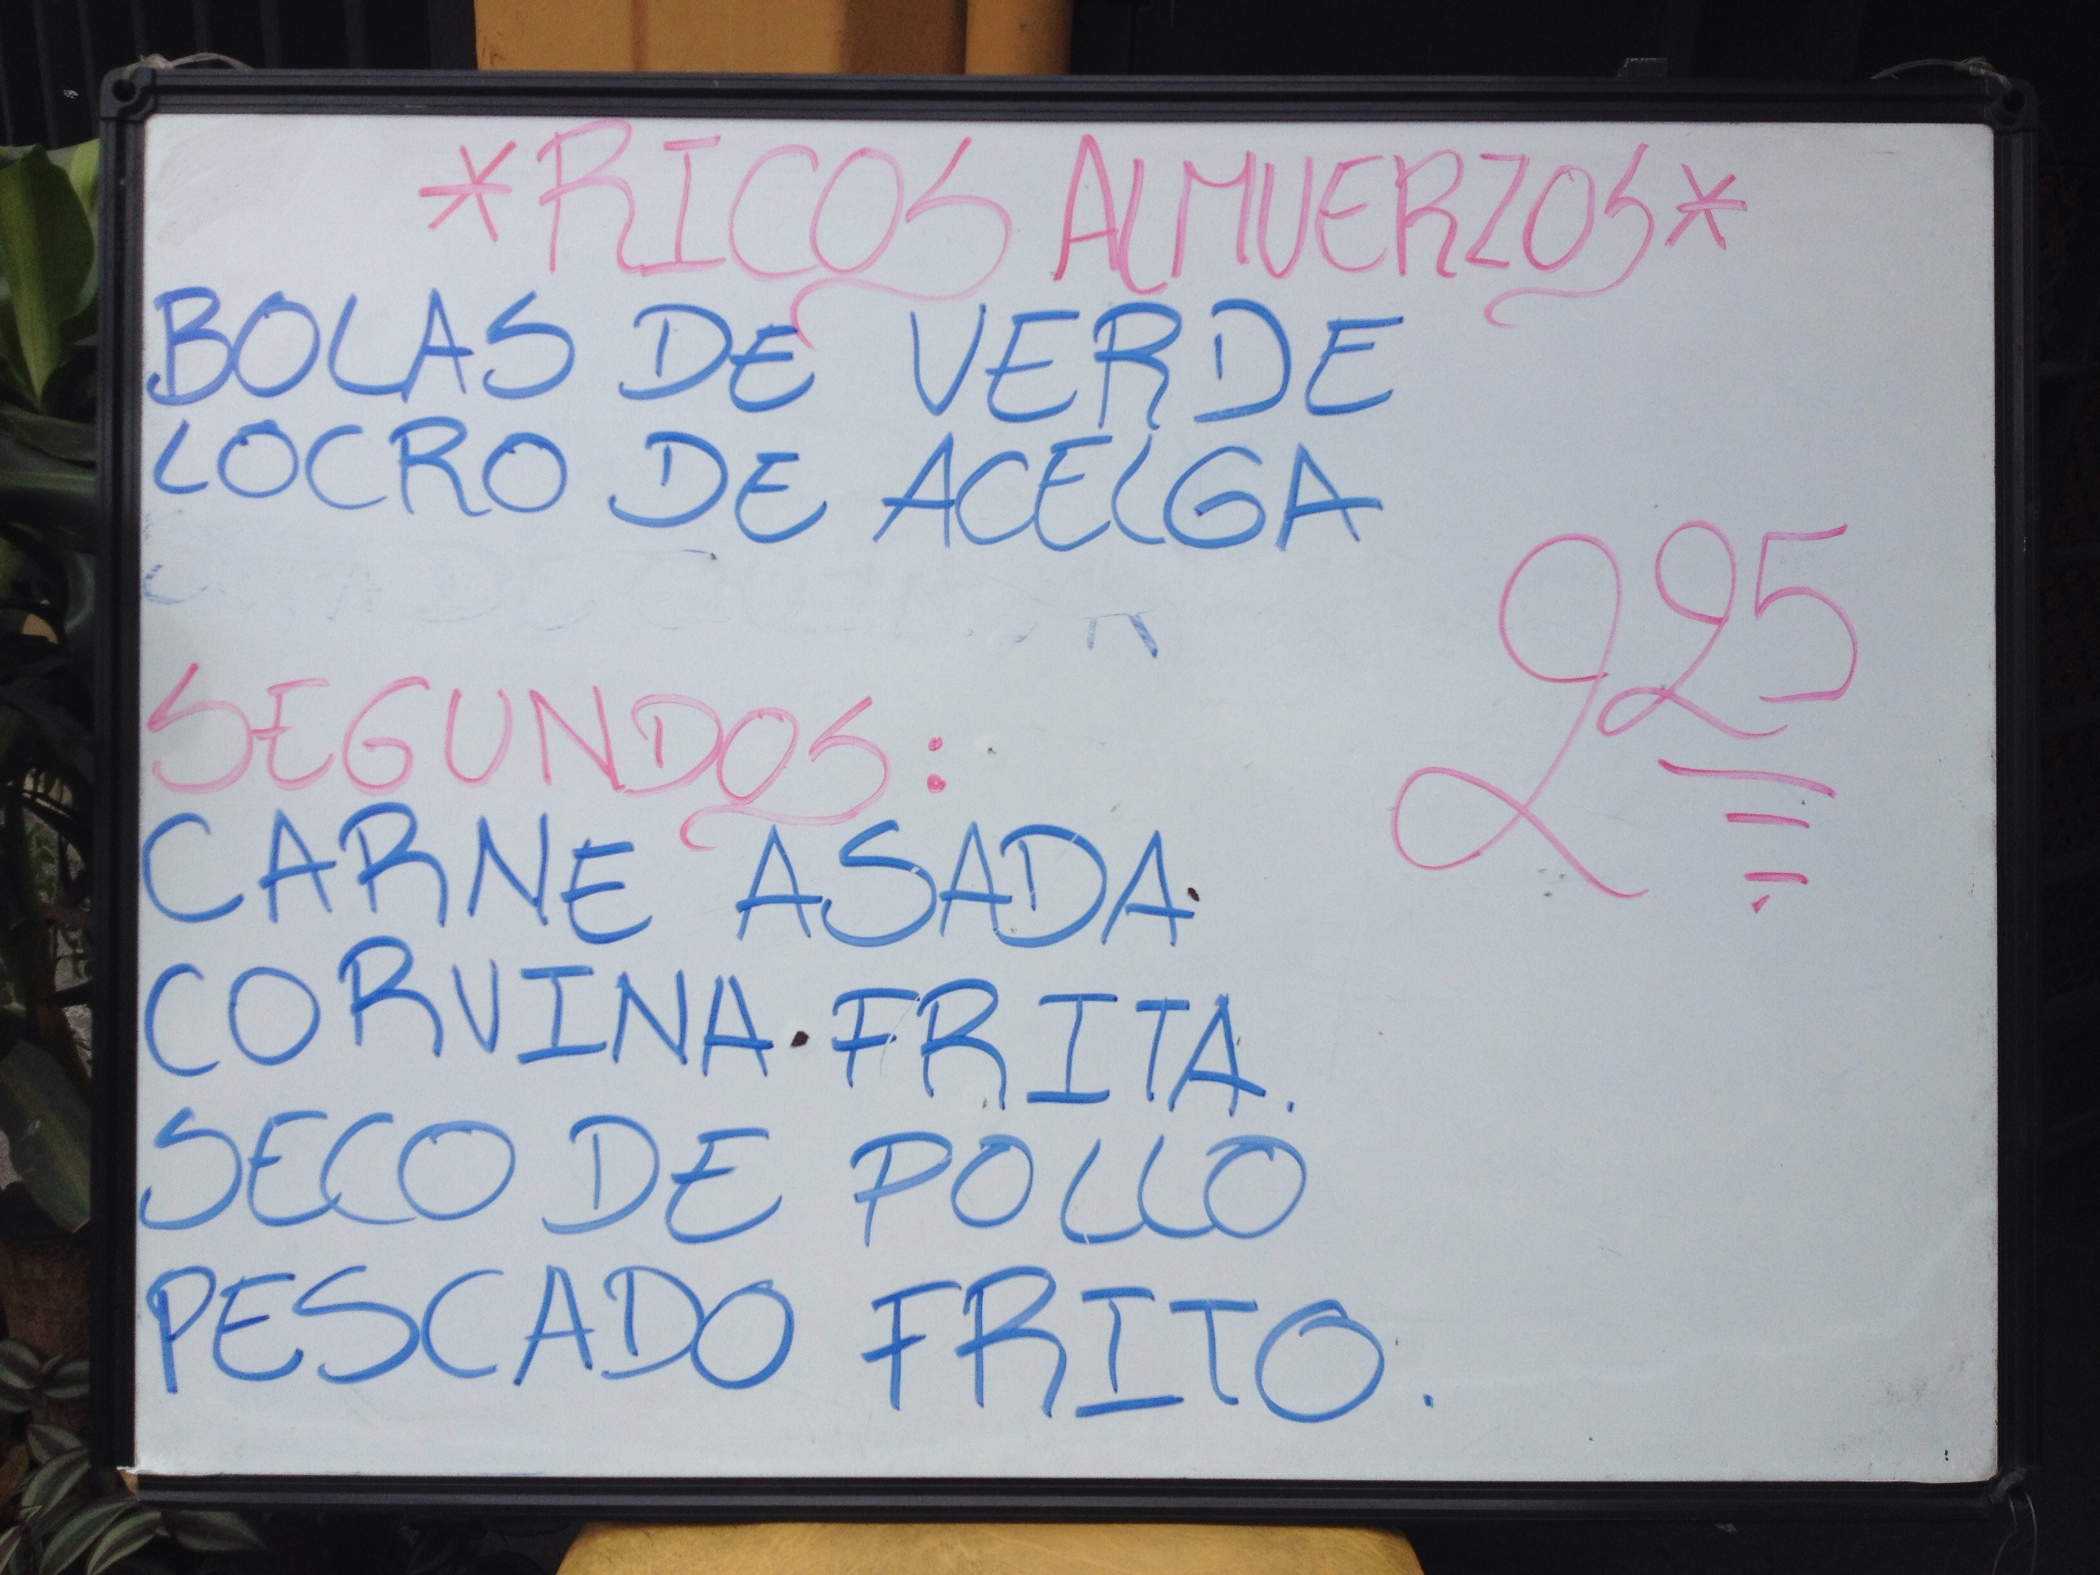 *RICOS ALMUERZOS*
BOLAS DE VERDE
LOCRO DE ACELGA
225
SEGUNDOS:
CARNE ASADA
CORVINA FRITA.
SECO DE POLLO
PESCADO FRITO.